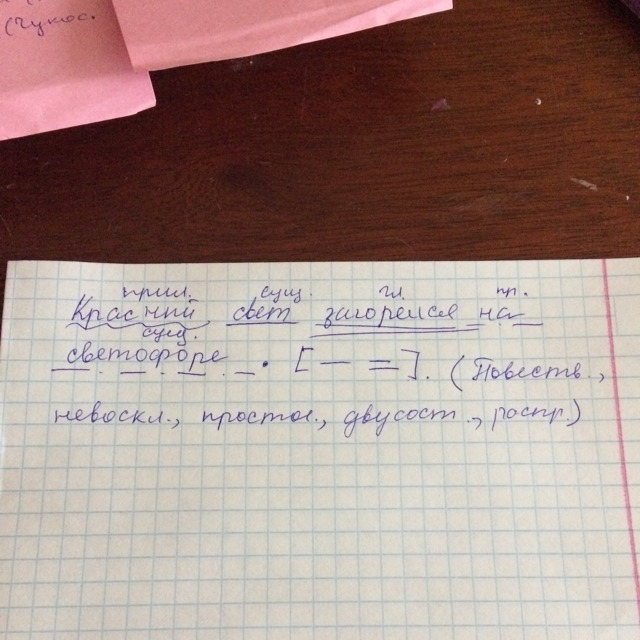 (Чукос.
прил. сущ. гл. пр.
Красный свет загорелся на
сущ.
светофоре. [— =]. (Повеств.,
невоскл., простое, двусост., распр.)